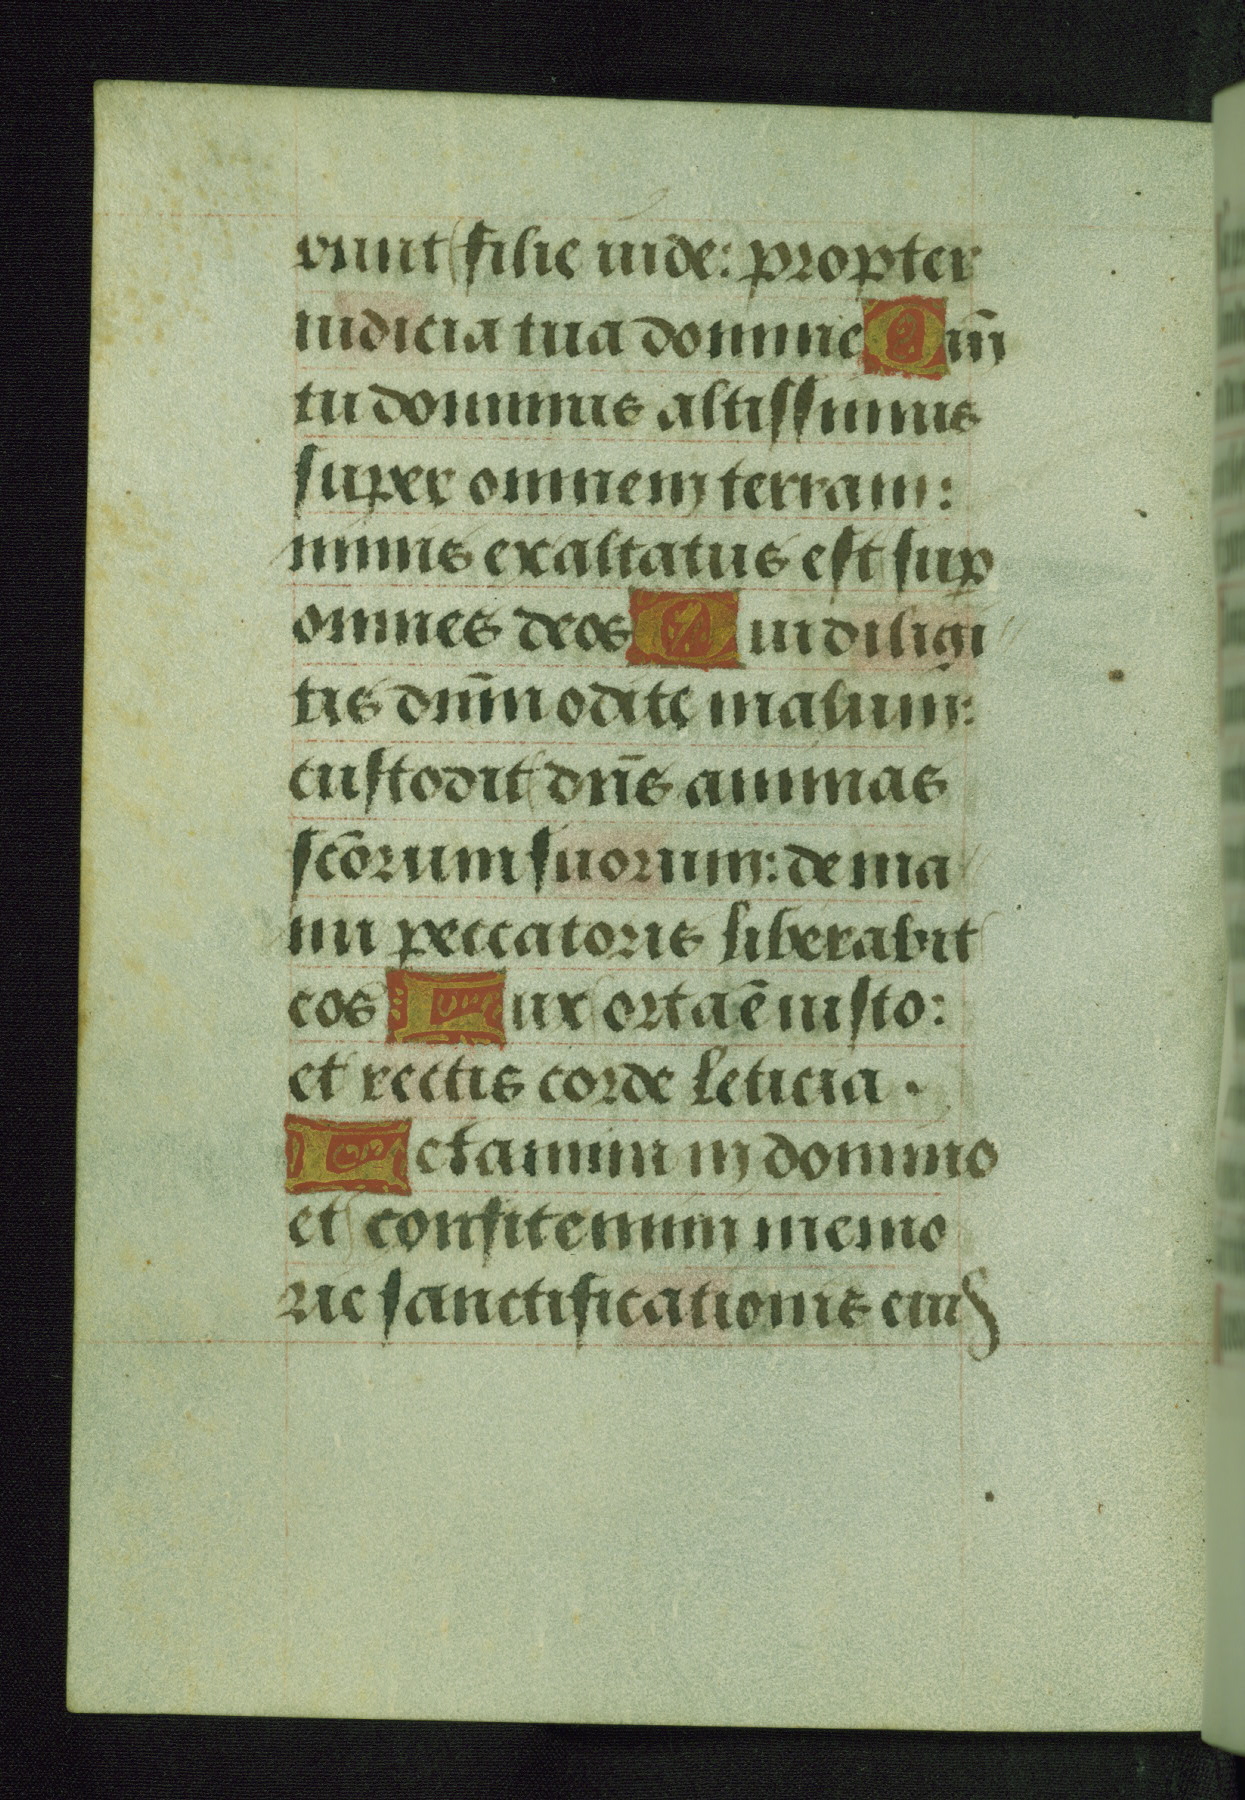 runt filie iude: propter
iudicia tua domine Qm̄
tu dominus altissimus
super omnem terram:
nimis exaltatus est sup
omnes deos Qui diligi
tis dn̄m odite malum:
custodit dn̄s animas
scōrum suorum: de ma
nu peccatoris liberabit
eos Lux orta ē iusto:
et rectis corde leticia .
Letamini in domino
et confitemini memo
rie sanctificationis eius